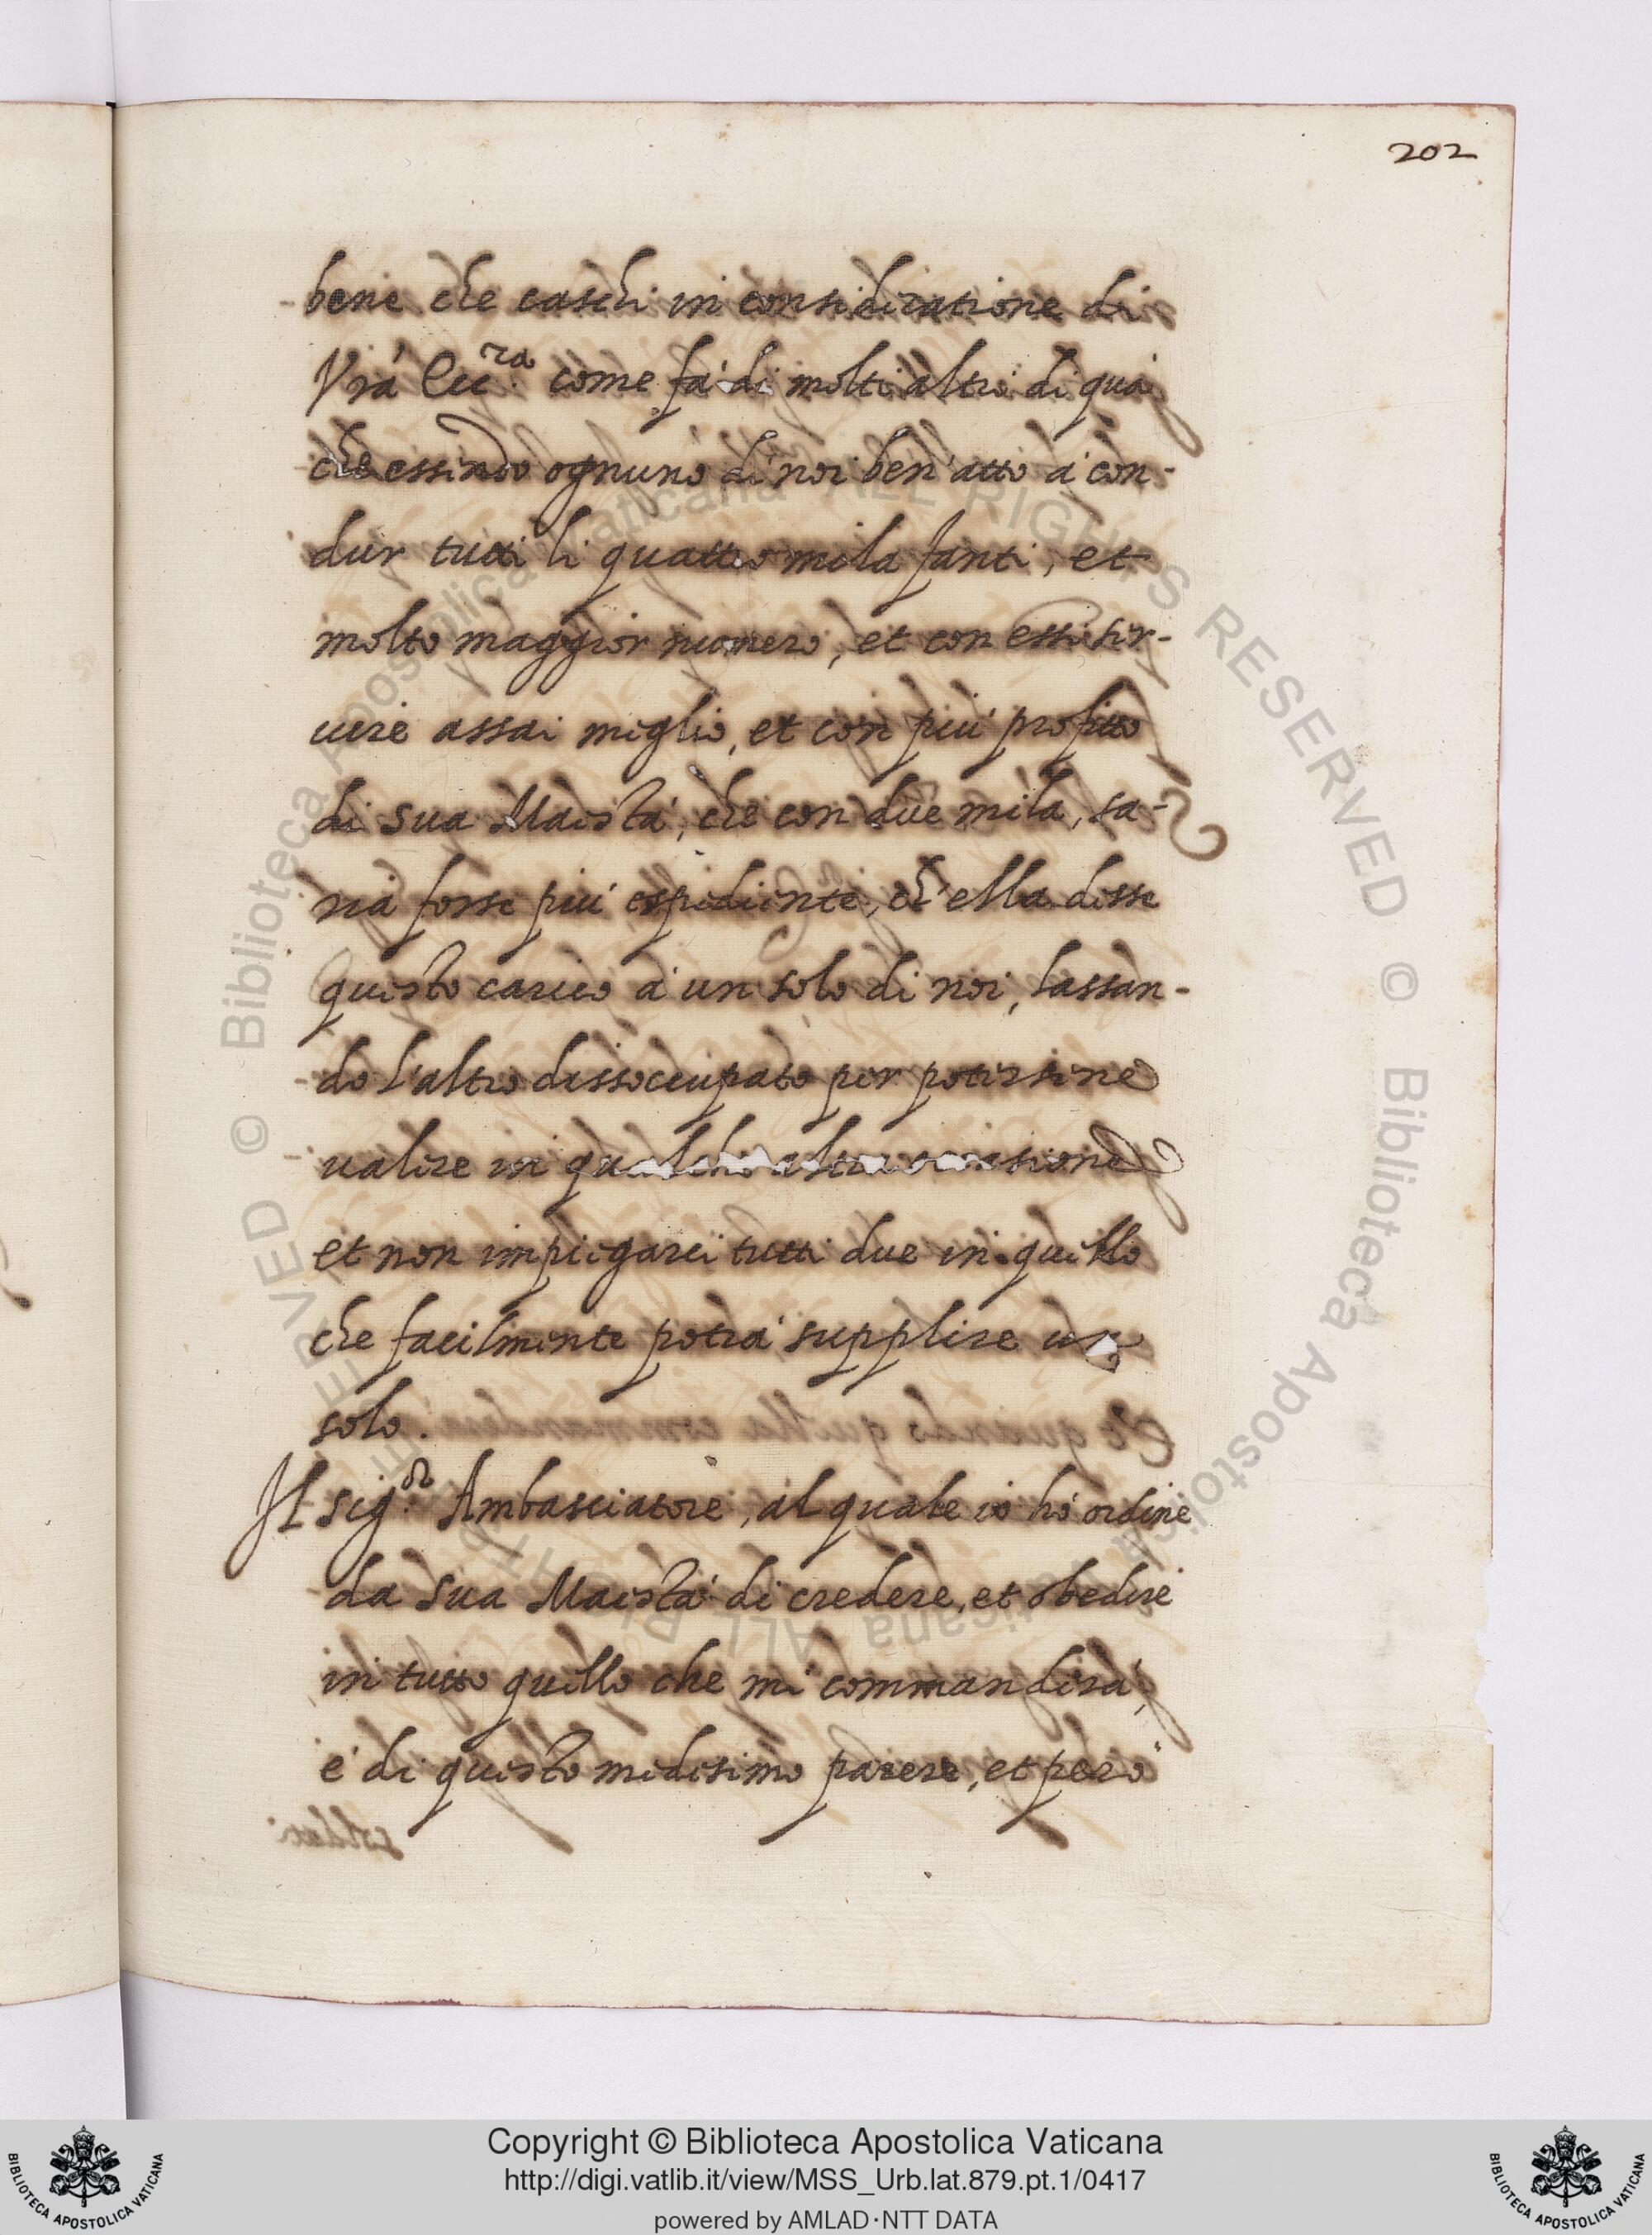 202
bene che caschi in consideratione di
Vrã Ecc.ra come fà di molti altri di quà
che essendo ognuno di noi ben' atto à con-
dur tutti li quattro mila fanti, et
molto maggior numero, et con essi ser-
uire assai meglio, et con più profitto
di sua Maestà, che con due mila, sa-
ria forse più espediente, ch'ella desse
questo carico à un solo di noi, lassan-
do l'altro dissoccupato per potersene
ualere in qualche altra occasione
et non impiegarci tutti due in quello
che facilmente potrà supplire un
solo.
Il sig.or Ambasciatore, al quale io hò ordine
da sua Maestà di credere, et obedire
in tutto quello che mi commanderà,
è di questo medesimo parere, et però
Copyright © Biblioteca Apostolica Vaticana
http://digi.vatlib.it/view/MSS_Urb.lat.879.pt.1/0417
powered by AMLAD·NTT DATA
BIBLIOTECA APOSTOLICA VATICANA
BIBLIOTECA APOSTOLICA VATICANA
© Biblioteca Apostolica Vaticana ALL RIGHTS RESERVED © Biblioteca Apostolica Vaticana ALL RIGHTS RESERVED